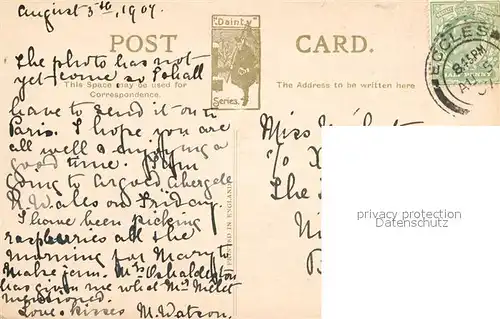 August 5th, 1907.
"Dainty"
POST CARD.
Series.
ECCLES
8.45PM
AU 5
07
HALFPENNY
The photo has not
yet come so I shall
This Space may be used for
Correspondence.
The Address to be written here
have to send it on to
Paris. I hope you are
all well & enjoying a
good time. I am
going to Abergele
N. Wales on Friday.
I have been picking
raspberries all the
morning for Mary to
make jam. Mrs
has given me what Mrs
mentioned.
Love & kisses M. Watson.
PRINTED IN ENGLAND
Miss
c/o
The
privacy protection
Datenschutz